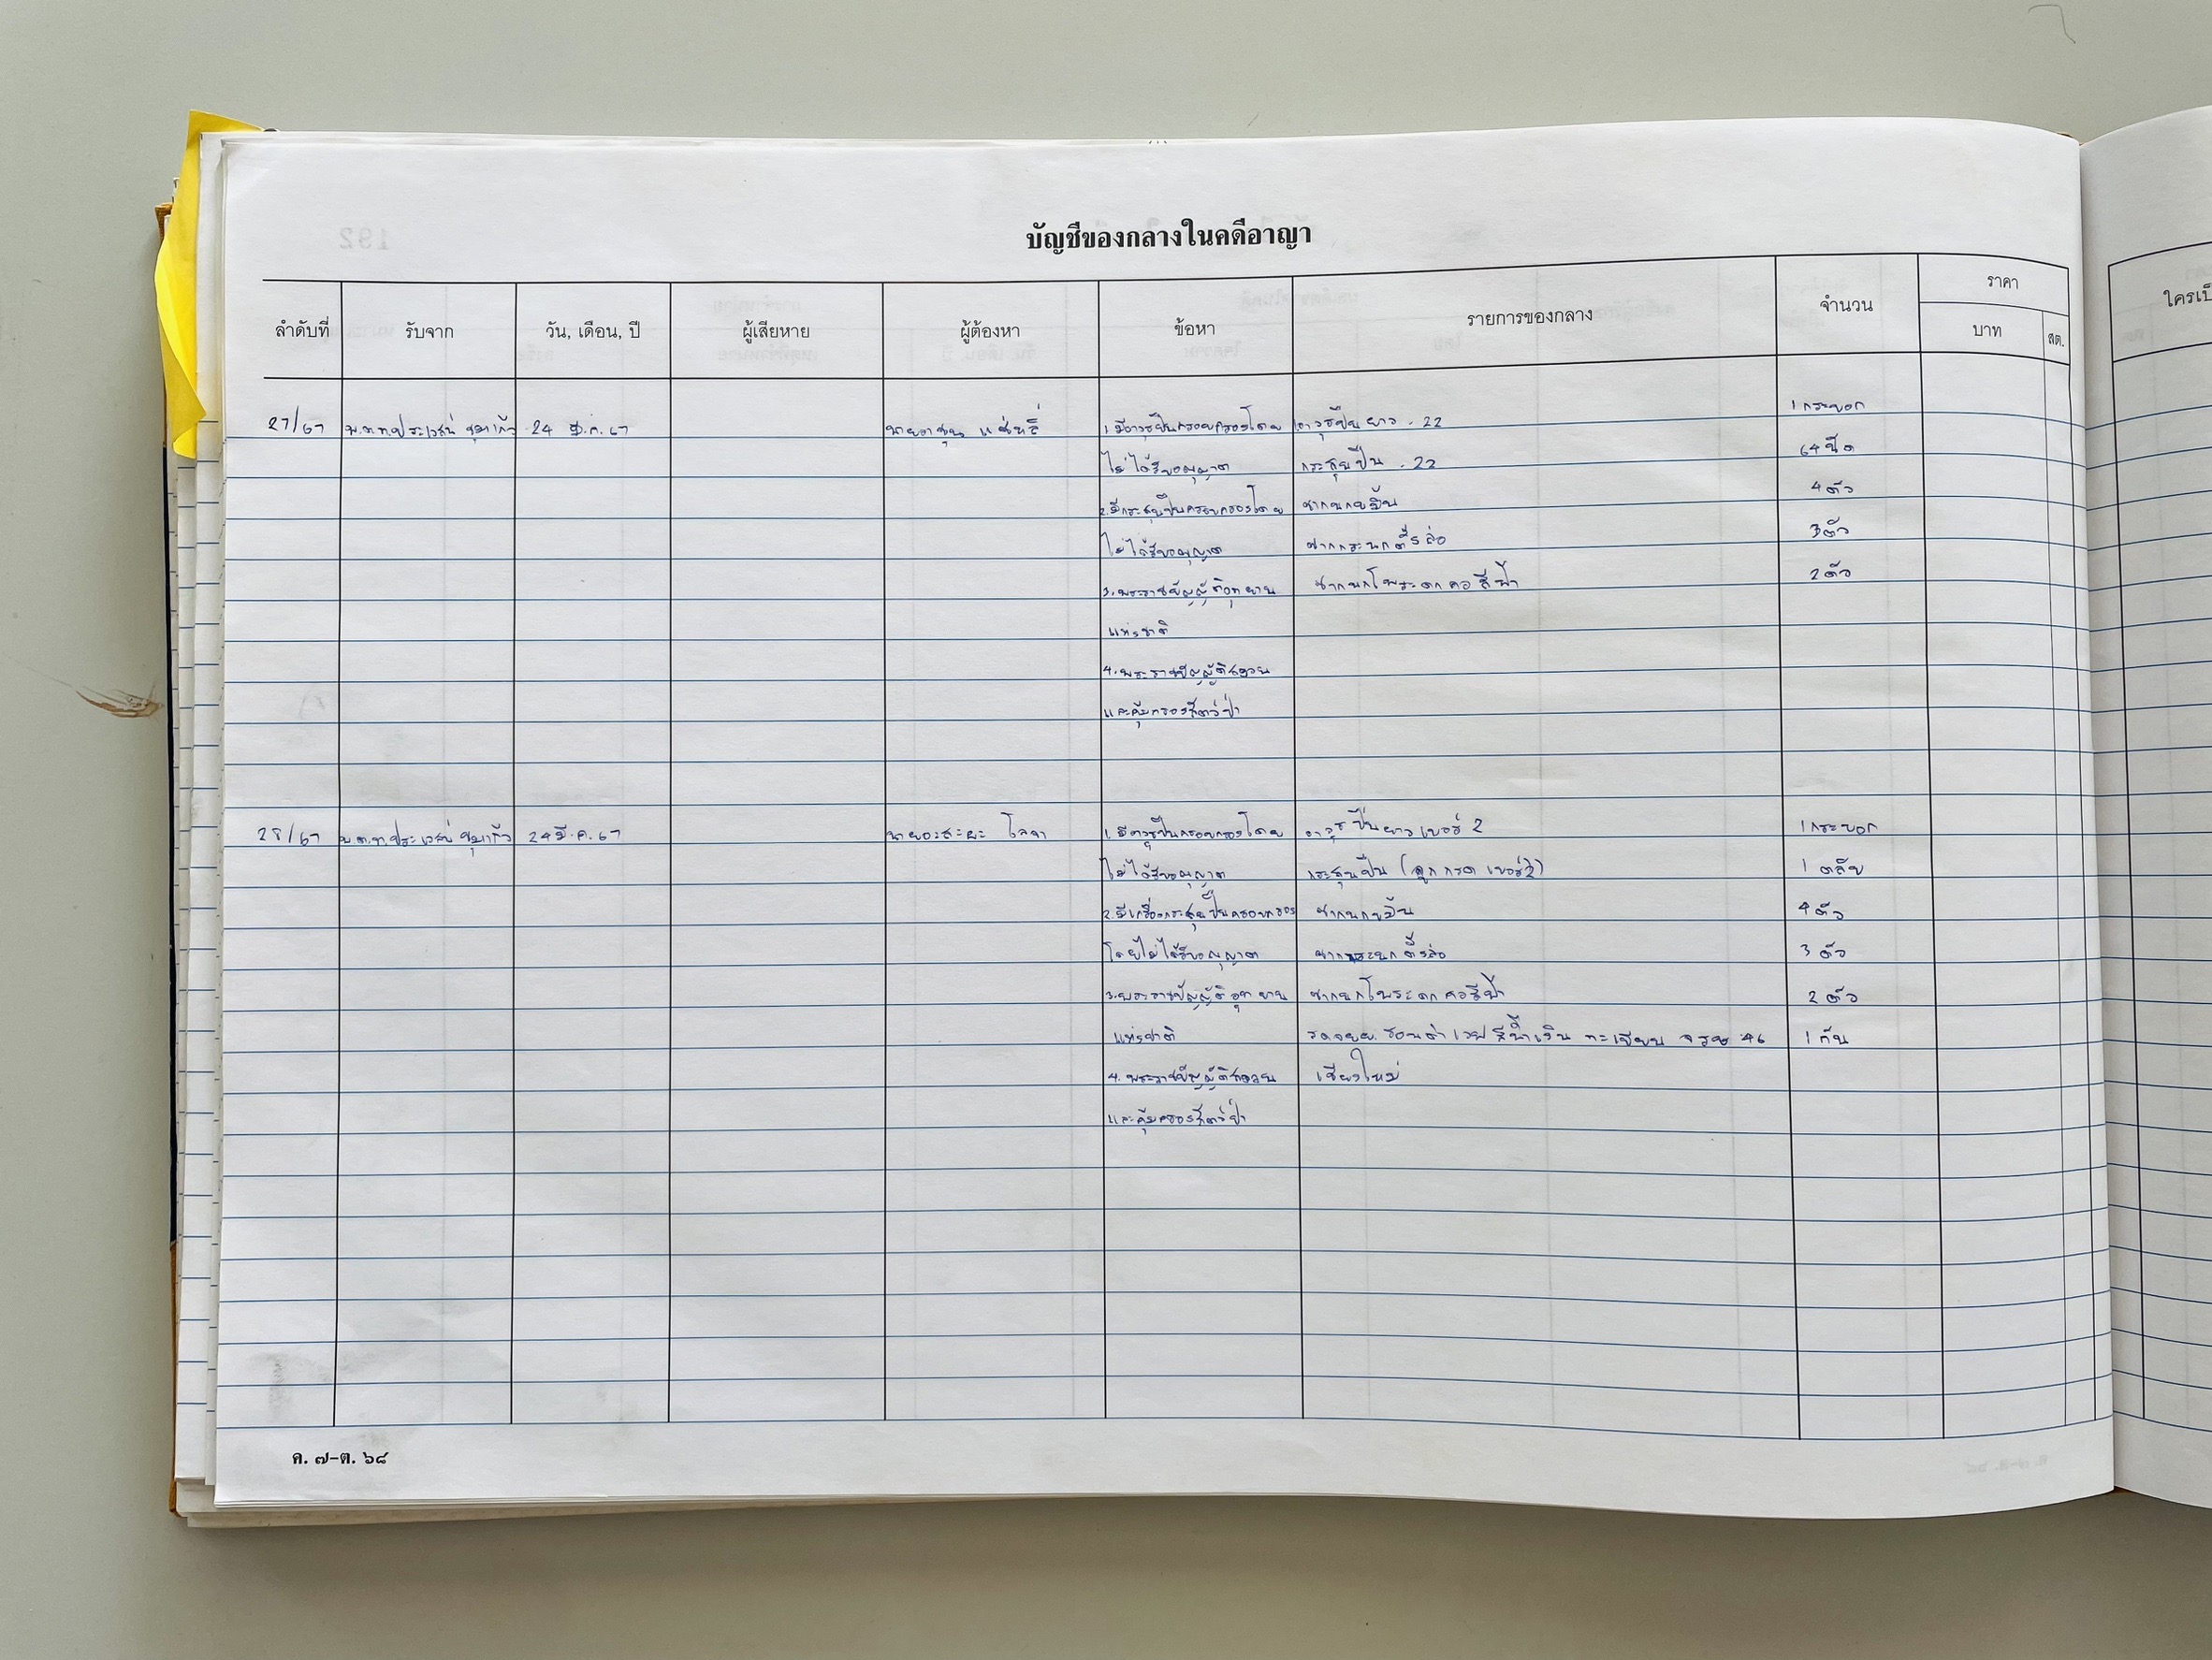 บัญชีของกลางในคดีอาญา
ลำดับที่ รับจาก วัน, เดือน, ปี ผู้เสียหาย ผู้ต้องหา ข้อหา รายการของกลาง จำนวน ราคา
บาท สต.
27/67 พ.ต.ท.ประเวศน์ 24 มี.ค. 67 1.มีอาวุธปืนครอบครองโดย อาวุธปืนยาว .22 1 กระบอก
ไม่ได้รับอนุญาต กระสุนปืน .22 64 นัด
2.มีกระสุนปืนครอบครองโดย ซากนกขมิ้น 4 ตัว
ไม่ได้รับอนุญาต 3 ตัว
3.พระราชบัญญัติอุทยาน ซากนกโพระดกคอสีฟ้า 2 ตัว
แห่งชาติ
4.พระราชบัญญัติสงวน
และคุ้มครองสัตว์ป่า
28/67 พ.ต.ท.ประเวศน์ 24 มี.ค. 67 1.มีอาวุธปืนครอบครองโดย อาวุธปืนยาวเบอร์ 2 1 กระบอก
ไม่ได้รับอนุญาต กระสุนปืน (ลูกกรดเบอร์ 2) 1 ตลับ
2.มีเครื่องกระสุนปืนครอบครอง ซากนกขมิ้น 4 ตัว
โดยไม่ได้รับอนุญาต 3 ตัว
3.พระราชบัญญัติอุทยาน ซากนกโพระดกคอสีฟ้า 2 ตัว
แห่งชาติ รถจยย.ฮอนด้า เวฟ สีน้ำเงิน ทะเบียน 46 1 คัน
4.พระราชบัญญัติสงวน เชียงใหม่
และคุ้มครองสัตว์ป่า
ค. ๗-ต. ๖๘